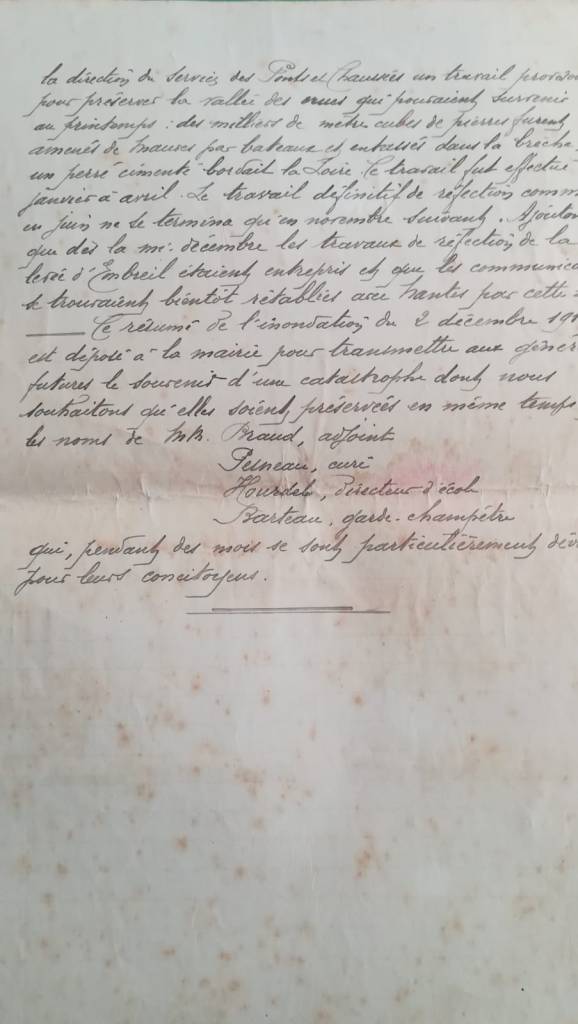 la direction du service des Ponts et Chaussées un travail provisoi
pour préserver la vallée des crues qui pouvaient survenir
au printemps : des milliers de mètre cubes de pierres furent
amenés de Mauves par bateaux et entassés dans la brèche
un perré cimenté bordait la Loire. Ce travail fut effectué
janvier à avril. Le travail définitif de réfection comm
en juin ne se termina qu'en novembre suivant. Ajouton
que dès la mi-décembre les travaux de réfection de la
levée d'Embreil étaient entrepris et que les communica
se trouvaient bientôt rétablies avec Nantes par cette
Ce résumé de l'inondation du 2 décembre 191
est déposé à la mairie pour transmettre aux génér
futures le souvenir d'une catastrophe dont nous
souhaitons qu'elles soient préservées en même temps
les noms de MM. Braud, adjoint
Pesneau, curé
Hourdel, Directeur d'écol
Barteau, garde-champêtre
qui, pendant des mois se sont particulièrement dév
pour leurs concitoyens.